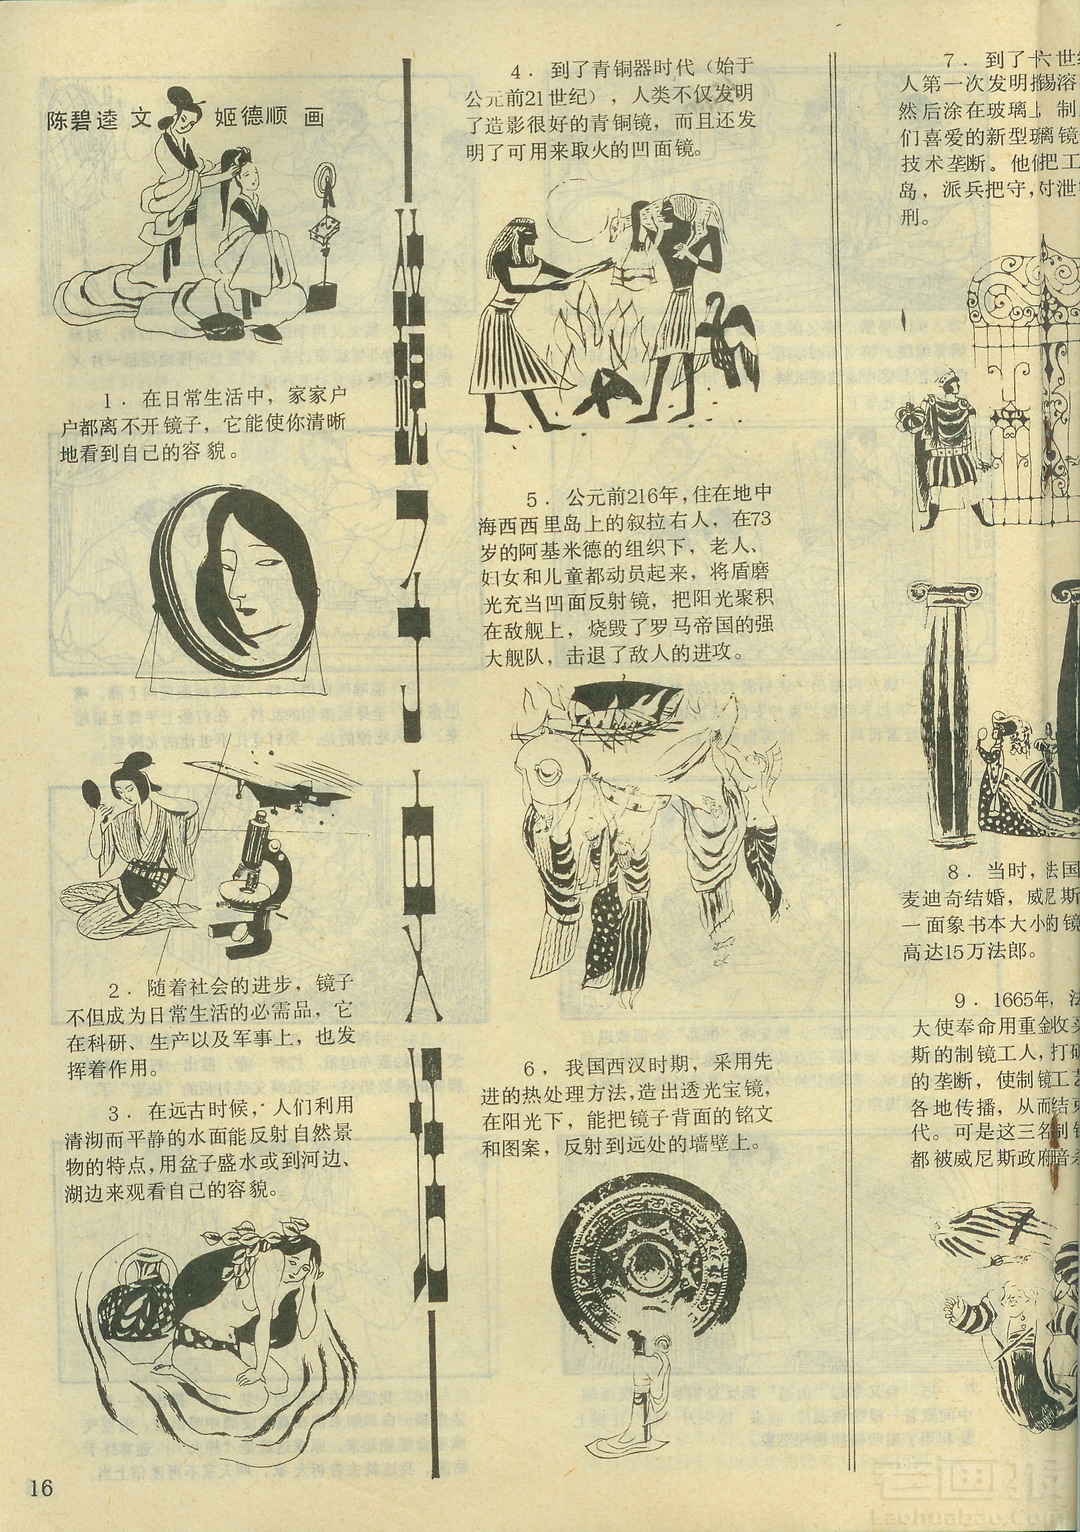 陈碧逵 文 姬德顺 画
1．在日常生活中，家家户
户都离不开镜子，它能使你清晰
地看到自己的容貌。
2．随着社会的进步，镜子
不但成为日常生活的必需品，它
在科研、生产以及军事上，也发
挥着作用。
3．在远古时候，人们利用
清沏而平静的水面能反射自然景
物的特点，用盆子盛水或到河边、
湖边来观看自己的容貌。
4．到了青铜器时代（始于
公元前21世纪），人类不仅发明
了造影很好的青铜镜，而且还发
明了可用来取火的凹面镜。
5．公元前216年，住在地中
海西西里岛上的叙拉右人，在73
岁的阿基米德的组织下，老人、
妇女和儿童都动员起来，将盾磨
光充当凹面反射镜，把阳光聚积
在敌舰上，烧毁了罗马帝国的强
大舰队，击退了敌人的进攻。
6，我国西汉时期，采用先
进的热处理方法，造出透光宝镜，
在阳光下，能把镜子背面的铭文
和图案，反射到远处的墙壁上。
7．到了十六世纪
人第一次发明把锡溶
然后涂在玻璃上 制
们喜爱的新型玻璃镜
技术垄断。他们把工
岛，派兵把守，对泄
刑。
8．当时，法国
麦迪奇结婚，威尼斯
一面象书本大小的镜
高达15万法郎。
9．1665年，法
大使奉命用重金收买
斯的制镜工人，打破
的垄断，使制镜工艺
各地传播，从而结束
代。可是这三名制镜
都被威尼斯政府暗杀
16
老画报
Laohuabao.Com